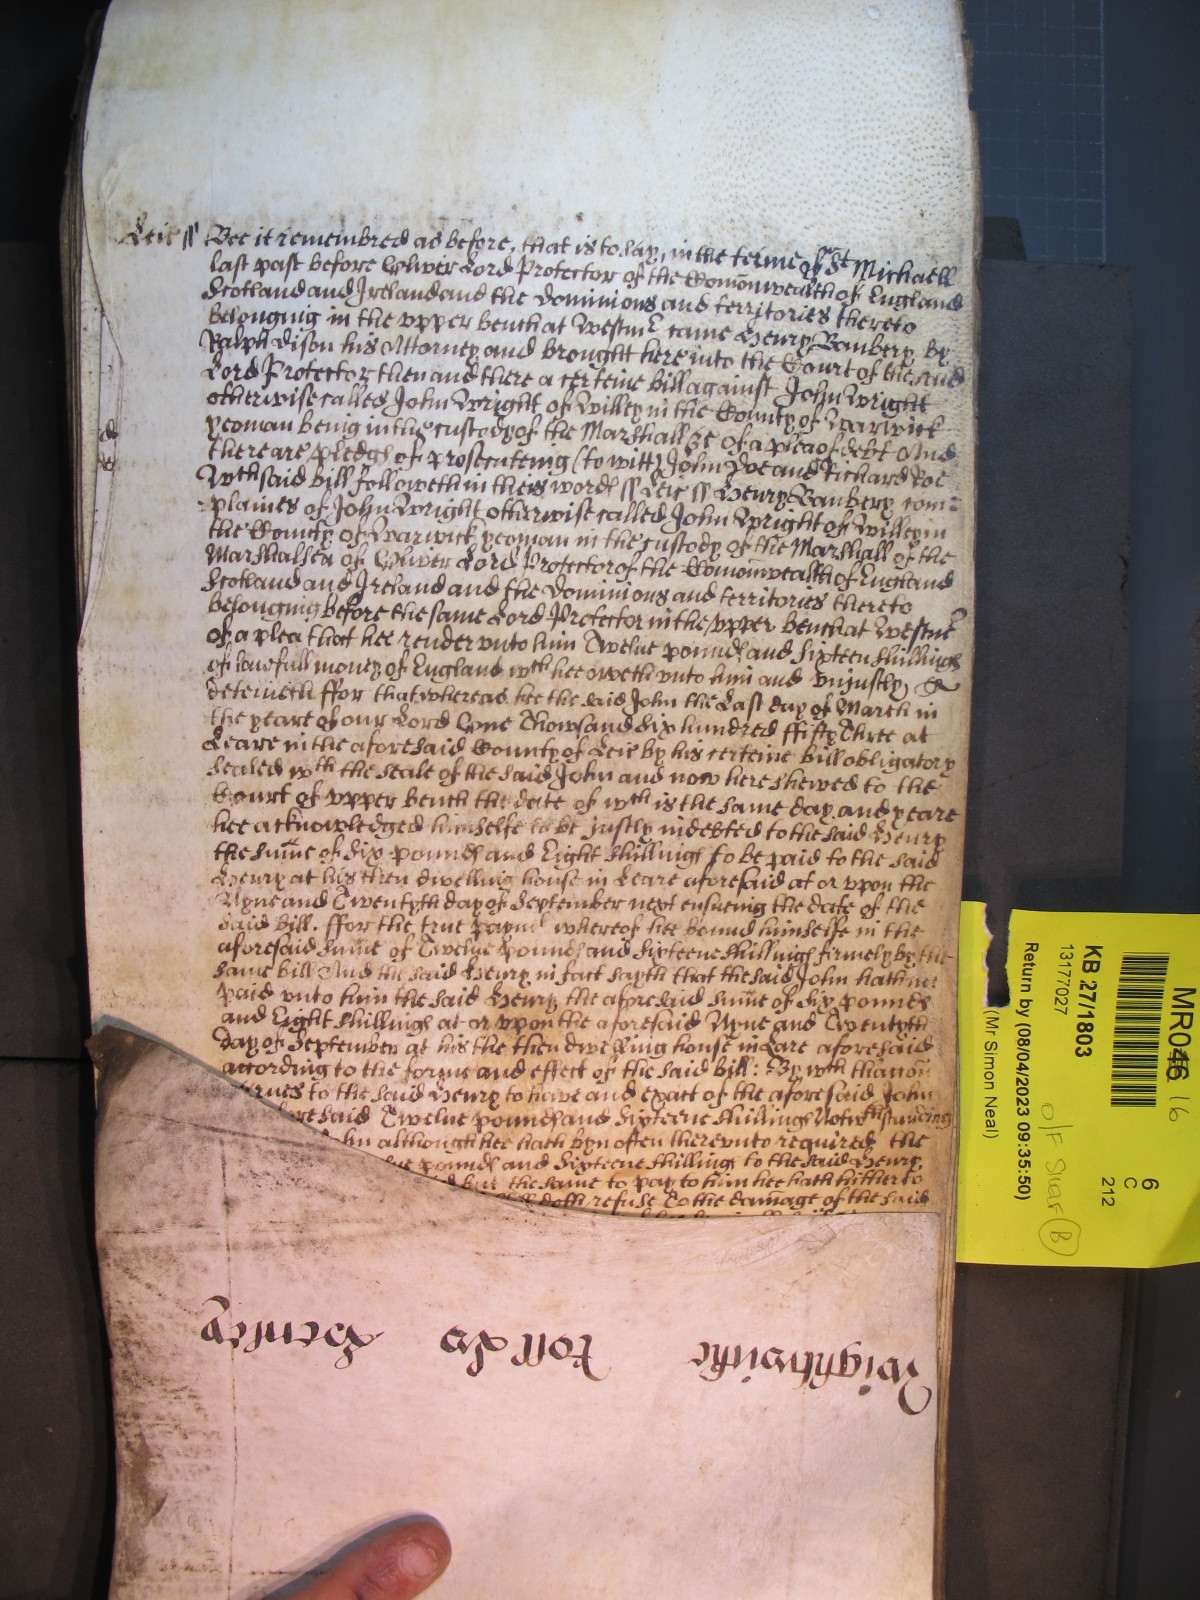 Leic ss Bee it remembred as before, that is to say, in the terme of St Michaell
last past before Oliver Lord Protector of the Comonwealth of England
Scotland and Ireland and the Dominions and territories thereto
belonging in the vpper bench at Westmr came Henry Banbery by
Ralph Dison his Attorney and brought here into the Court of the said
Lord Protector then and there a certeine bill against John Wright
otherwise called John Wright of Willey in the County of Warwick
yeoman being in the custody of the Marshall &c of a plea of debt And
there are pledges of prosecuteing (to witt) John Doe and Richard Roe
Wch said bill followeth in theis words ss Leic ss Henry Banbery com=
plaines of John Wright otherwise called John Wright of Willey in
the County of Warwick yeoman in the custody of the Marshall of the
Marshalsea of Oliver Lord Protector of the Comonwealth of England
Scotland and Ireland and the Dominions and territories thereto
belonging before the same Lord Protector in the vpper bench at Westmr
of a plea that hee render vnto him Twelue pounds and sixteen shillings
of lawfull money of England wch hee oweth vnto him and vniustly
deteineth ffor that whereas hee the said John the Last day of March in
the yeare of our Lord One Thowsand Six hundred ffifty Three at
Leare in the aforesaid County of Leic by his certeine bill obligatory
sealed wth the seale of the said John and now here shewed to the
Court of vpper bench the date of wch is the same day and yeare
hee acknowledged himselfe to be justly indebted to the said Henry
the sume of Six pounds and Eight shillings to be paid to the said
Henry at his then dwelling house in Leare aforesaid at or vpon the
Nyne and Twentyth day of September next ensueing the date of the
said bill. ffor the true paymt whereof hee bound himselfe in the
aforesaid sume of Twelue pounds and sixteene shillings firmely by the
same bill And the said Henry in fact sayth that the said John hath not
paid vnto him the said Henry the aforesaid sume of Six pounds
and Eight shillings at or vpon the aforesaid Nyne and Twentyth
day of September at his the then dwelling house in Leare aforesaid
according to the forme and effect of the said bill: By wch
to the said Henry to haue and exact of the aforesaid John
Twelue pounds and sixteene shillings Notwthstanding
although hee hath byn often therevnto required the
pounds and sixteene shillings to the said Henry
but the same to pay to him hee hath hitherto
doth refuse To the damage of the said
Wightwicke roll
MR046 16
6
C
212
KB 27/1803
13177027
Return by (08/04/2023 09:35:50)
(Mr Simon Neal)
O/F Shar B